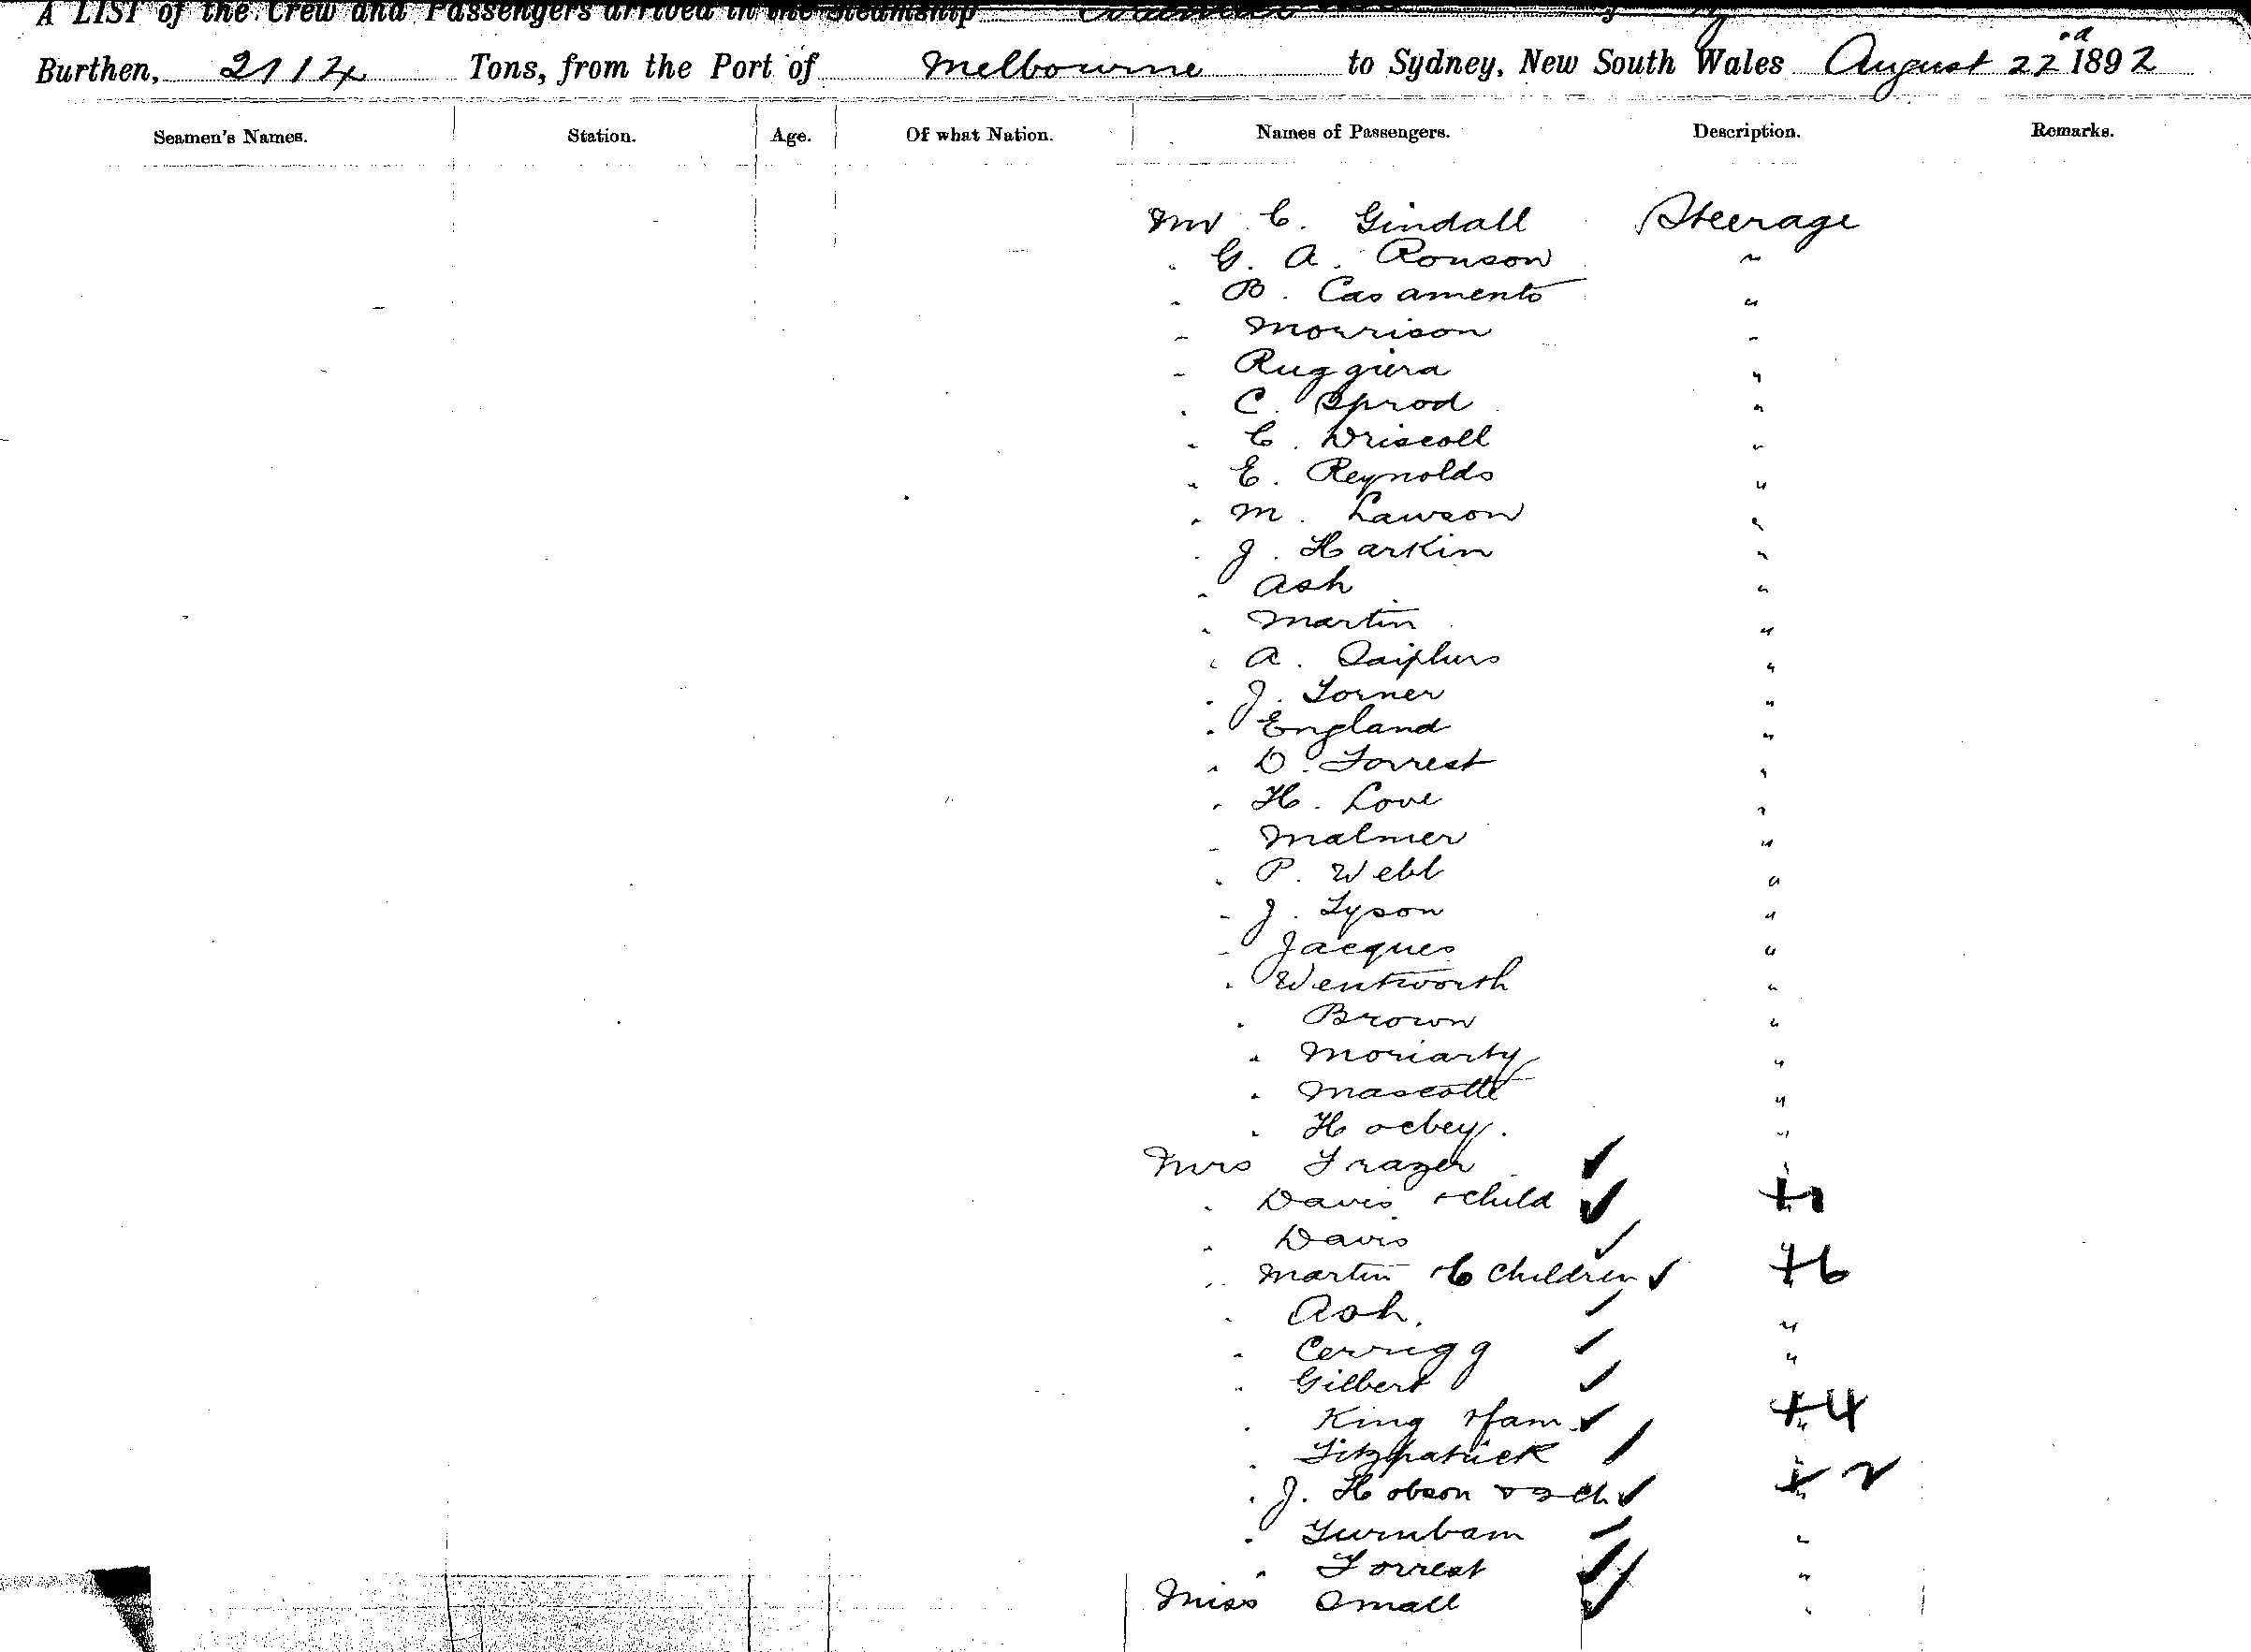 A LIST of the Crew and Passengers arrived in the Steamship
Burthen, 2714 Tons, from the Port of Melbourne to Sydney, New South Wales August 22nd 1892
Seamen's Names. Station. Age. Of what Nation. Names of Passengers. Description. Remarks.
Mr C. Gindall Steerage
" G. A. Ronson "
" B. Casamento "
" Morrison "
" Ruggiera "
" C. Sprod "
" C. Driscoll "
" E. Reynolds "
" M. Lawson "
" J. Harkin "
" Ash "
" Martin "
" A. "
" J. Torner "
" England "
" D. Forrest "
" H. Love "
" Malmer "
" P. Webb "
" J. Tyson "
" Jacques "
" Wentworth "
" Brown "
" Moriarty "
" Mascotte "
" Hoebey. "
Mrs Frazer ✓ "
" Davis + child ✓ " +1
" Davis ✓ "
" Martin + 6 children ✓ " +6
" Ash. ✓ "
" Cerrigg ✓ "
" Gilbert ✓ "
" King + fam ✓ " +4
" Fitzpatrick ✓ "
" J. Hobson + 2 ch ✓ " + 2
" Turnbam ✓ "
" Forrest ✓ "
Miss Small ✓ "